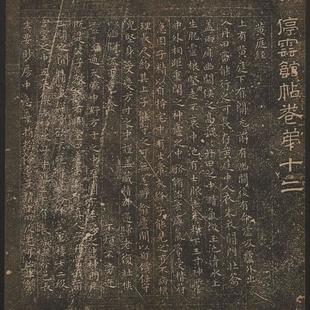 停雲館帖卷第十二
黃庭經
上有黃庭下有關元前有幽闕後有命門噓吸廬外出
入丹田審能行之可長存黃庭中人衣朱衣關門壯籥
蓋兩扉幽闕俠之高魏魏丹田之中精氣微玉池清水上
生肥靈根堅志不衰中池有士服赤朱橫下三寸神所居
中外相距重閉之神廬之中務修治玄膺氣管受精符
急固子精以自持宅中有士常衣絳子能見之可不病橫
理長尺約其上子能守之可無恙呼噏廬間以自償保守
完堅身受慶方寸之中謹蓋藏精神還歸老復壯俠
以幽闕流下竟 不煩不旁迕
靈臺通天臨中野方寸之中至關下玉房之中神門戶
既是公子教我者
三關之間精氣深子欲不死修 重樓十二級
宮室之中五采集 有長
生要眇房中急棄捐